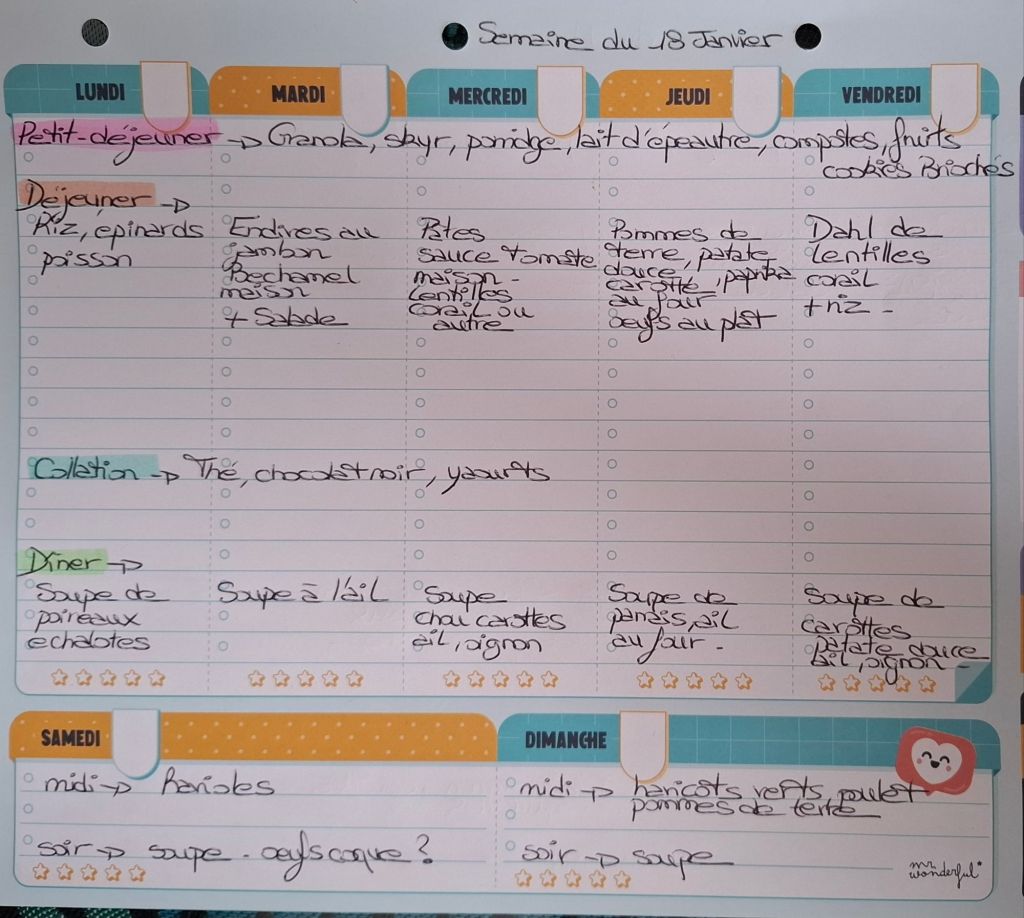 Semaine du 18 Janvier
LUNDI MARDI MERCREDI JEUDI VENDREDI
Petit-déjeuner → Granola, skyr, porridge, lait d'épeautre, compotes, fruits
cookies Briochés
Déjeuner →
Riz, épinards
poisson
Endives au
jambon
Bechamel
maison
+ Salade
Pâtes
sauce tomate
maison -
lentilles
corail ou
autre
Pommes de
terre, patate
douce
carotte, paprika
au four
oeufs au plât
Dahl de
lentilles
corail
+ riz -
Collation → Thé, chocolat noir, yaourts
Dîner →
Soupe de
poireaux
echalotes
Soupe à l'ail
Soupe
chou carottes
ail, oignon
Soupe de
panais, ail
au four -
Soupe de
carottes
patate douce
ail, oignon -
SAMEDI
midi → Ravioles
soir → soupe - oeufs coque ?
DIMANCHE
midi → haricots verts, poulet
pommes de terre
soir → soupe
mr.
wonderful*